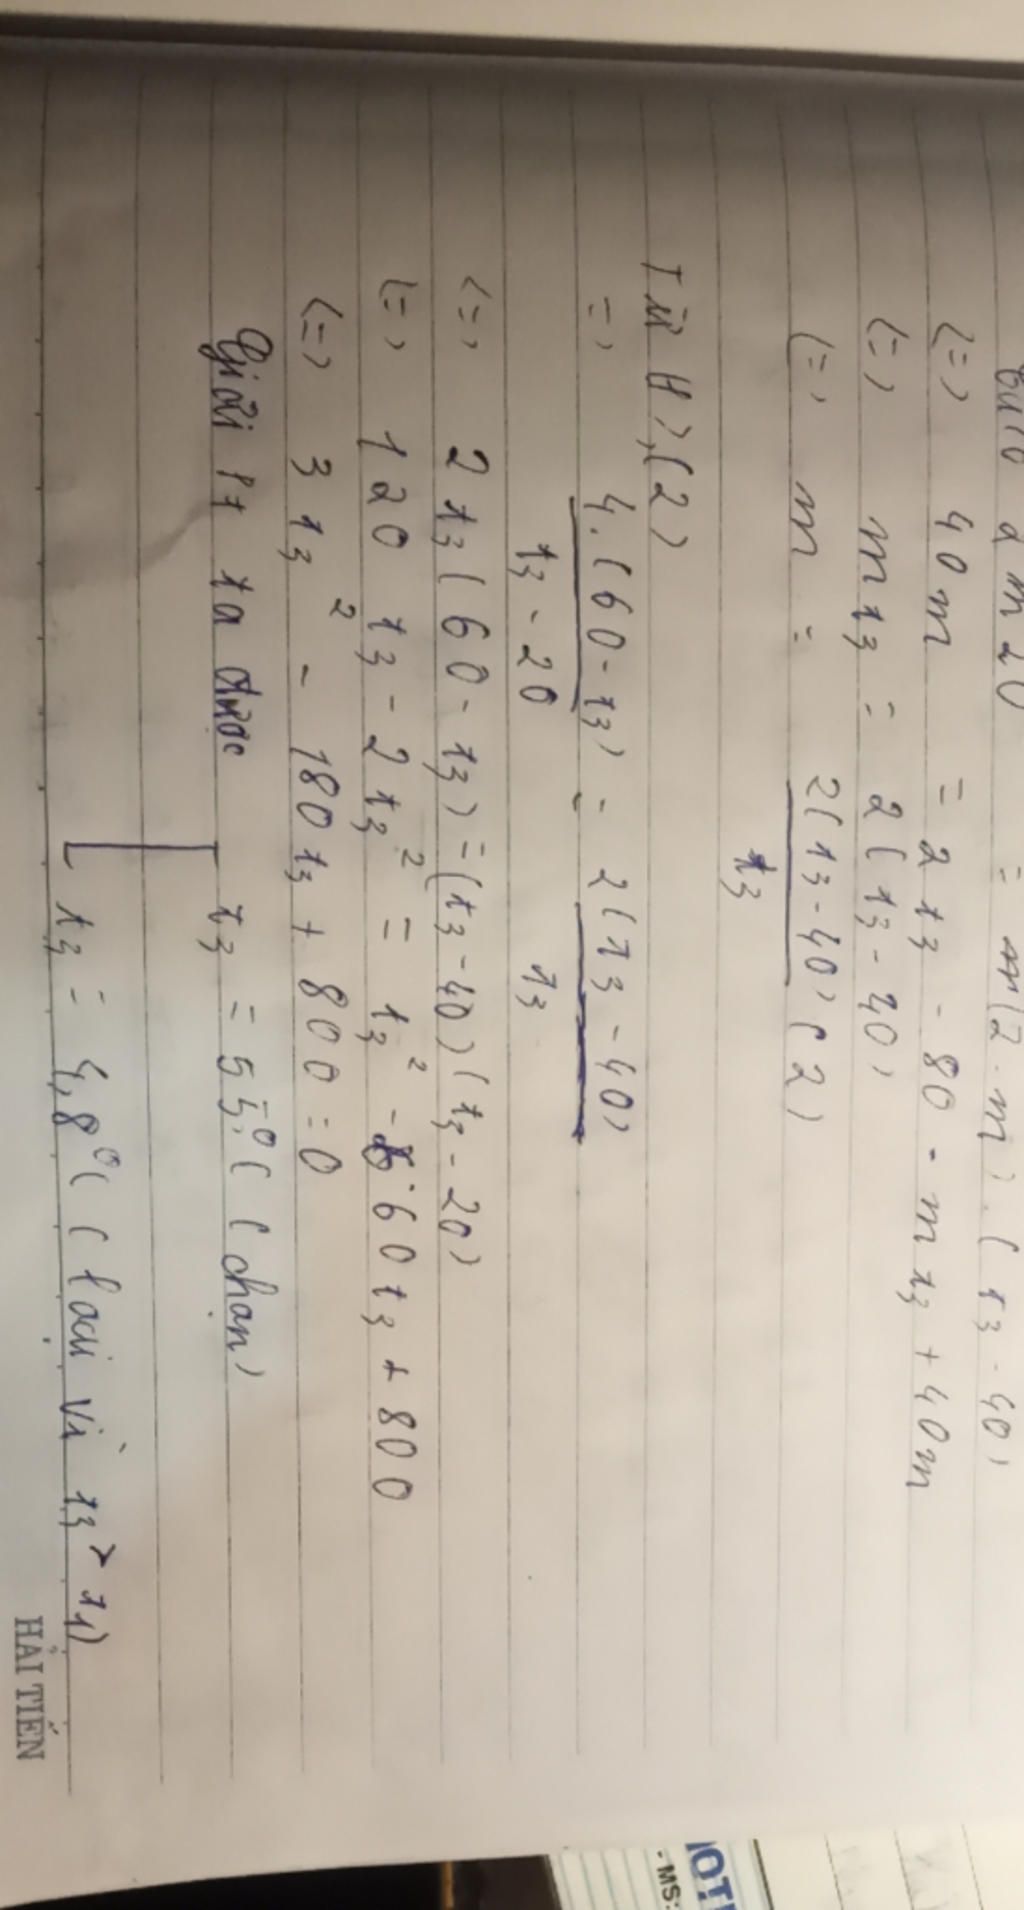 = m(2-m).(t3-40)
<=> 40m = 2t3-80-mt3+40m
<=> mt3 = 2(t3-40)
<=> m = 2(t3-40) (2)
t3
Từ (1),(2)
=> 4.(60-t3) = 2(t3-40)
t3-20 t3
<=> 2t3(60-t3)=(t3-40)(t3-20)
<=> 120t3-2t3² = t3²-60t3+800
<=> 3t3² - 180t3 + 800 = 0
Giải pt ta được t3 = 55,0 (chọn)
t3 = 4,8°C (loại vì t3>t1)
HẢI TIẾN
- MS: